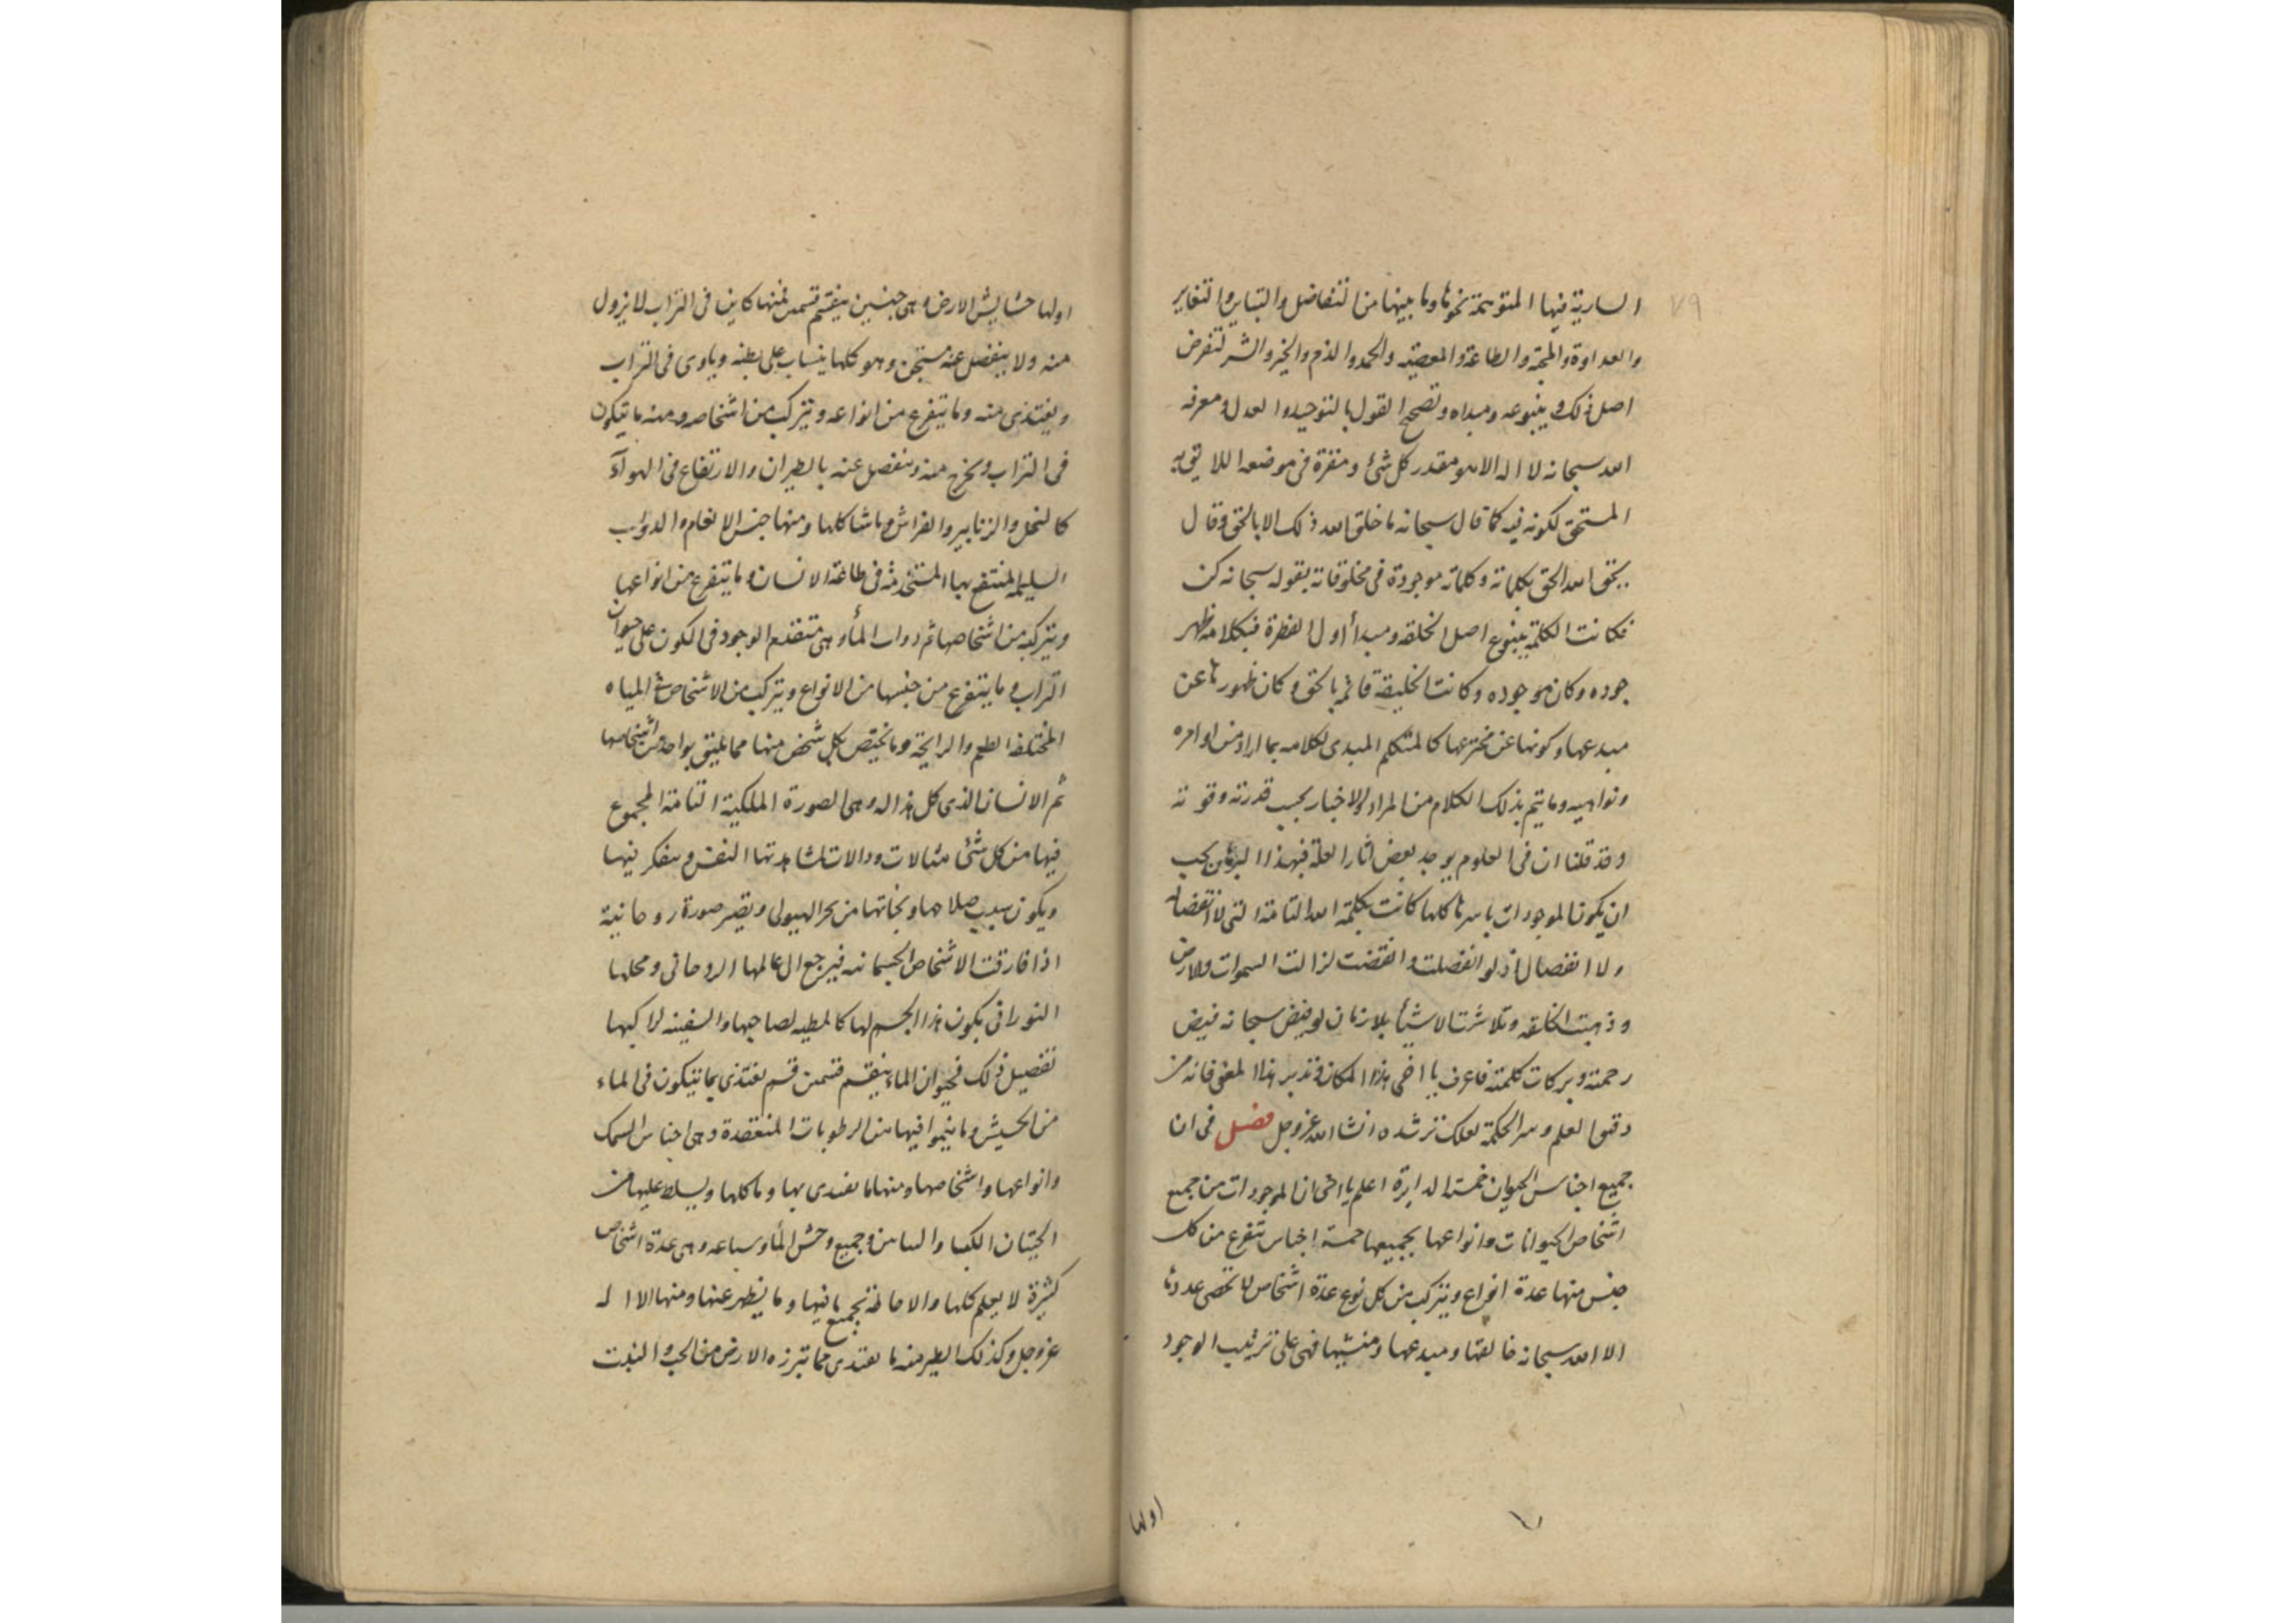 ٧٩
السارية فيها المتوسمة نحوها وما بينها من التفاضل والتباين والتغاير
والعداوة والمحبة والطاعة والمعصية والحمد والذم والخير والشر لتعرض
اصل ذلك وينبوعه ومبداه وتصحح القول بالتوحيد والعدل ومعرفه
الله سبحانه لا اله الا هو مقدر كل شئ ومنقرة فى موضعه اللايق به
المستحق لكونه فيه كما قال سبحانه ما خلق الله ذلك الا بالحق وقال
يحق الله الحق بكلماته وكلماته موجودة فى مخلوقاته بقوله سبحانه كن
فكانت الكلمة ينبوع اصل الخلقه ومبدأ اول الفطرة فبكلامه ظهر
جوده وكان موجوده وكانت الخليقة قائمه بالحق وكان ظهورها عن
مبدعها وكونها عن مخترعها كالمتكلم المبدى لكلامه بما اراد من اوامره
ونواهيه وما يتم بذلك الكلام من المراد والاخبار بحسب قدرته وقوته
وقد قلنا ان فى العلوم يوجد بعض اثار العلة فبهذا البرهان يجب
ان يكون الموجودات باسرها كلها كانت بكلمة الله التامة التى لا انقضا لها
ولا انفصال اذ لو انفصلت وانقضت لزالت السموات والارض
وذهبت الخلقه وتلاشت الاشيأ بلا زمان لو يفيض سبحانه فيض
رحمته وبركات كلمته فاعرف يا اخى هذا المكان وتدبر هذا المعنى فانه من
دقيق العلم وسر الحكمة لعلك ترشده انشا الله عز وجل فصل فى ان
جميع اجناس الحيوان خمسة الدايرة اعلم يا اخى ان الموجودات من جميع
اشخاص الحيوانات وانواعها بجميعها خمسة اجناس تتفرع من كل
جنس منها عدة انواع ويتركب من كل نوع عدة اشخاص لا تحصى عددها
الا الله سبحانه خالقها ومبدعها ومنشيها فهى على ترتيب الوجود
اولها
اولها حشايش الارض وهى جنسين ينقسم قسمين فمنها كاين فى التراب لا يزول
منه ولا ينفصل عنه مستجن وهو كلها ينساب على بطنه وياوى فى التراب
ويغتذى منه وما يتفرع من انواعه ويتركب من اشخاصه ومنه ما يتكون
فى التراب ويخرج منه وينفصل عنه بالطيران والارتفاع فى الهوآء
كالنحل والزنابير والفراش وما شاكلها ومنها جنس الانعام والدواب
السليمه المنتفع بها المستخدمة فى طاعة الانسان وما يتفرع من انواعها
ويتركب من اشخاصها ثم دواب المأ وهى متقدم الوجود فى الكون على حيوان
التراب وما يتفرع من جنسها من الانواع ويتركب من الاشخاص فى المياه
المختلفه الطعم والرايحة وما يختص بكل شخص منها مما يليق بواحد من اشخاصها
ثم الانسان الذى كل هذا له وهى الصورة الملكية التامة المجموع
فيها من كل شئ مثالات ودالات لمشاهدتها النفس ويتفكر فيها
ويكون سبب صلاحها ونجاتها من بحر الهيولى وتصير صورة روحانية
اذا فارقت الاشخاص الجسمانيه فيرجع الى عالمها الروحانى ومحلها
النورانى يكون هذا الجسم لها كالمطيه لصاحبها والسفينه لراكبها
تفصيل ذلك فحيوان الماء ينقسم قسمين قسم يغتذى بما يتكون فى الماء
من الحشيش وما ينموا فيها من الرطوبات المنعقدة وهى اجناس السمك
وانواعها واشخاصها ومنها ما يغتدى بها وماكلها ويسلط عليها من
الحيتان الكبار والتنانين وجميع وحش المأ وسباعه وهى عدة اشخاص
كثيرة لا يعلم كلها والاحاطة بجميع ما فيها وما يظهر عنها ومنها الا اله
عز وجل وكذلك الطير منه ما يغتدى مما تبرزه الارض من الحب والنبات